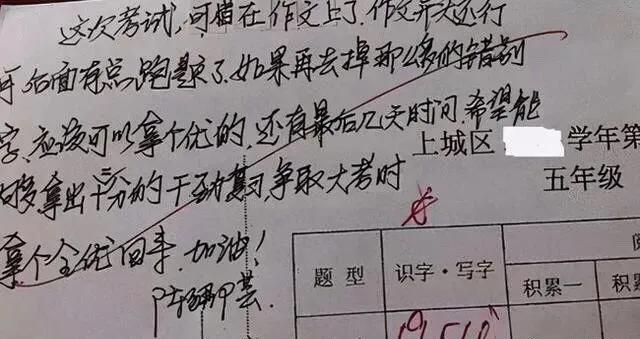 这次考试,可惜在作文上了.作文开头还行
后面有点跑题了.如果再去掉那么多的错别
字,应该可以拿个优的.还有最后几天时间.希望能
够拿出十二分的干劲复习.争取大考时
拿个全优回来.加油!
上城区 学年第
五年级
题 型 识字·写字
积累一 积累